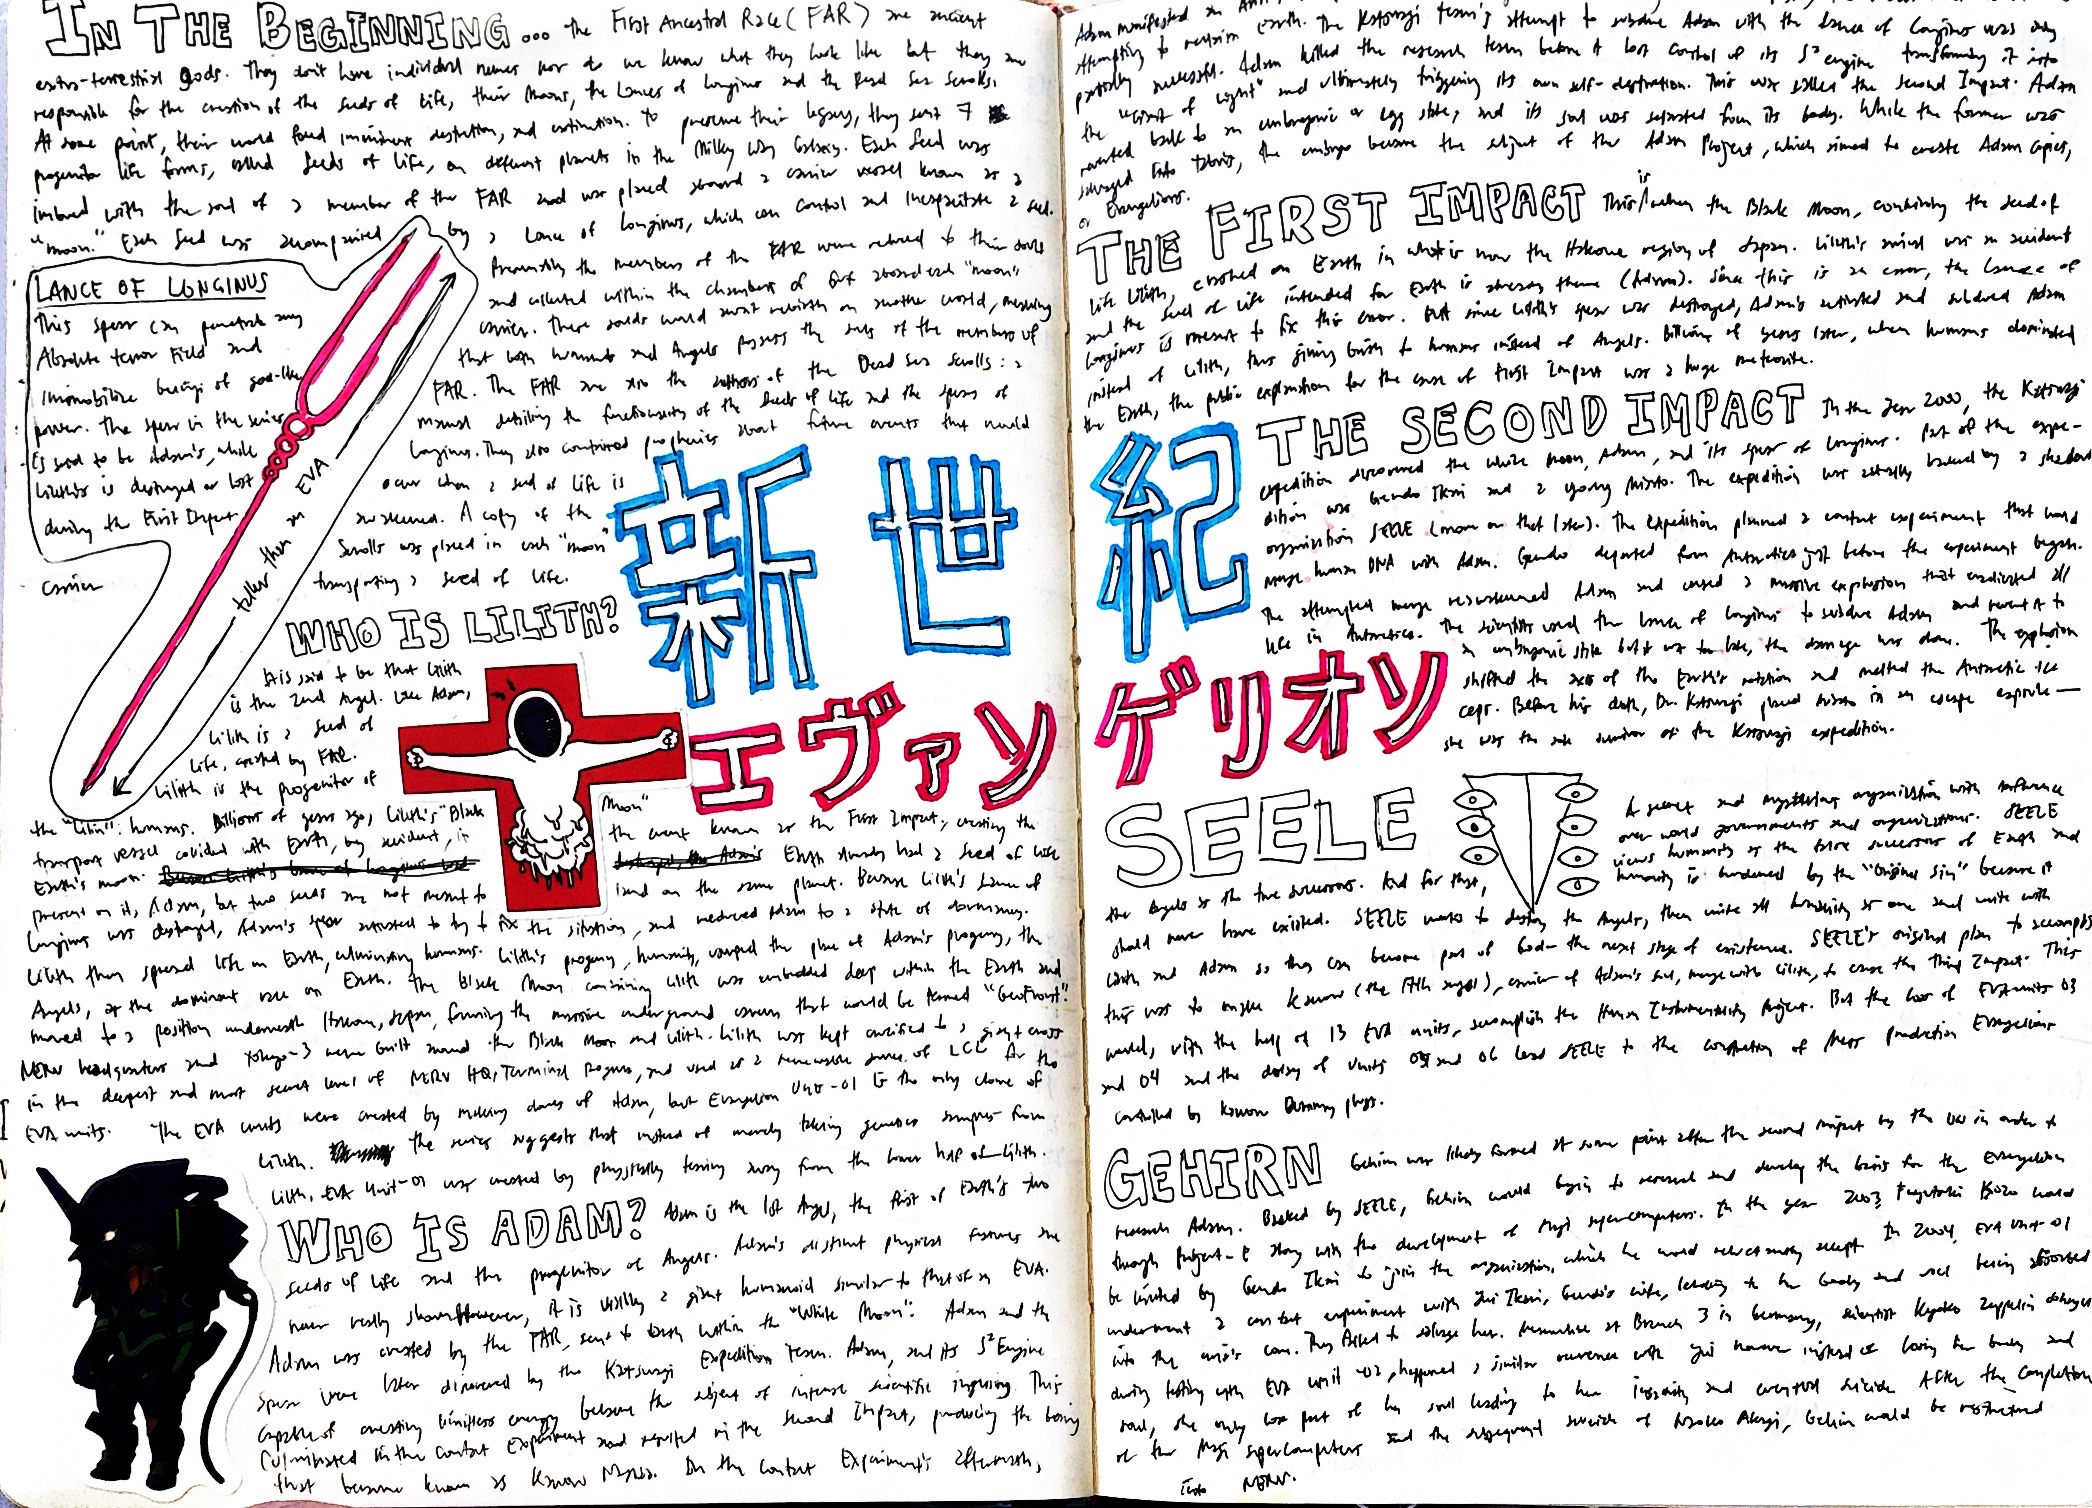 IN THE BEGINNING... the First Ancestral Race (FAR) are ancient
extra-terrestrial gods. They don't have individual names nor do we know what they look like but they are
responsible for the creation of the seeds of life, their Moons, the Lances of Longinus and the Dead Sea Scrolls.
At some point, their world faced imminent destruction, and extinction. To preserve their legacy, they sent 7
progenitor life forms, called Seeds of Life, on different planets in the Milky Way Galaxy. Each Seed was
imbued with the soul of a member of the FAR and was placed around a carrier vessel known as a
"moon." Each Seed was accompanied by a Lance of Longinus, which can control and incapacitate a seed.
Presumably the members of the FAR were reduced to their souls
and collected within the chambers of Guf aboard each "moon"
carrier. These souls would await rebirth on another world, meaning
that both humans and Angels possess the souls of the members of
FAR. The FAR are also the authors of the Dead Sea Scrolls: a
manual detailing the functionality of the Seeds of life and the spears of
Longinus. They also contained prophecies about future events that would
occur when a seed of life is
awakened. A copy of the
Scrolls was placed in each "moon"
transporting a seed of life.
LANCE OF LONGINUS
This spear can penetrate any
Absolute terror Field and
immobilize beings of god-like
power. The spear in the series
is said to be Adam's, while
Lilith's is destroyed or lost
during the First Impact
carrier
taller than an EVA
WHO IS LILITH?
It is said to be that Lilith
is the 2nd Angel. Like Adam,
Lilith is a seed of
life, created by FAR.
Lilith is the progenitor of
the "Lilin": humans. Billions of years ago, Lilith's "Black Moon"
transport vessel collided with Earth, by accident, in the event known as the First Impact, creating the
Earth's moon. Earth already had a Seed of life
present on it, Adam, but two seeds are not meant to land on the same planet. Because Lilith's Lance of
Longinus was destroyed, Adam's spear activated to try to fix the situation, and reduced Adam to a state of dormancy.
Lilith then spread life on Earth, culminating humans. Lilith's progeny, humanity, usurped the place of Adam's progeny, the
Angels, as the dominant race on Earth. The Black Moon containing Lilith was embedded deep within the Earth and
moved to a position underneath Hakone, Japan, forming the massive underground cavern that would be termed "GeoFront."
NERV headquarters and Tokyo-3 were built around the Black Moon and Lilith. Lilith was kept crucified to a giant cross
in the deepest and most secret level of NERV HQ, Terminal Dogma, and used as a renewable source of LCL for the
EVA units. The EVA units were created by making clones of Adam, but Evangelion Unit-01 is the only clone of
Lilith. The series suggests that instead of merely taking genetics samples from
Lilith, EVA Unit-01 was created by physically tearing away from the lower half of Lilith.
WHO IS ADAM? Adam is the 1st Angel, the first of Earth's two
seeds of life and the progenitor of Angels. Adam's distinct physical features are
never really shown. However, it is visibly a giant humanoid similar to that of an EVA.
Adam was created by the FAR, sent to Earth within the "White Moon". Adam and the
spear were later discovered by the Katsuragi Expedition team. Adam, and its S² Engine
capable of creating limitless energy became the subject of intense scientific inquiry. This
culminated in the Contact Experiment and resulted in the Second Impact, producing the being
that became known as Kaworu Nagisa. In the Contact Experiment's aftermath,
新世紀
エヴァンゲリオン
Adam manifested in
attempting to Earth. The Katsuragi team's attempt to subdue Adam with the Lance of Longinus was only
partially successful. Adam killed the research team before it lost control of its S² engine transforming it into
the "Giant of Light" and ultimately triggering its own self-destruction. This was called the Second Impact. Adam
reverted back to an embryonic or egg state, and its soul was separated from its body. While the former was
salvaged into Tabris, the embryo became the subject of the Adam Project, which aimed to create Adam copies,
or Evangelions.
THE FIRST IMPACT This is when the Black Moon, containing the seed of
life Lilith, crashed on Earth in what is now the Hakone region of Japan. Lilith's arrival was an accident
and the seed of life intended for Earth is already there (Adam). Since this is an error, the Lance of
Longinus is meant to fix this error. But since Lilith's spear was destroyed, Adam's activated and subdued Adam
instead of Lilith, thus giving birth to humans instead of Angels. Billions of years later, when humans dominated
the Earth, the public explanation for the cause of First Impact was a huge meteorite.
THE SECOND IMPACT In the Year 2000, the Katsuragi
expedition discovered the White Moon, Adam, and its spear of Longinus. Part of the expe-
dition was Gendo Ikari and a young Misato. The expedition was actually backed by a shadow
organization SEELE (more on that later). The expedition planned a contact experiment that would
merge human DNA with Adam. Gendo departed from Antarctica just before the experiment began.
The attempted merge reawakened Adam and caused a massive explosion that eradicated all
life in Antarctica. The scientists used the Lance of Longinus to subdue Adam and revert it to
an embryonic state but it was too late, the damage was done. The explosion
shifted the axis of the Earth's rotation and melted the Antarctic ice
caps. Before his death, Dr. Katsuragi placed Misato in an escape capsule—
she was the sole survivor of the Katsuragi expedition.
SEELE
A secret and mysterious organization with influence
over world governments and organizations. SEELE
views humanity as the false successors of Earth and
the Angels as the true successors. And for that, humanity is burdened by the "Original Sin" because it
should never have existed. SEELE wants to destroy the Angels, then unite all humanity as one and unite with
Lilith and Adam so they can become part of God—the next stage of existence. SEELE's original plan to accomplish
this was to make Kaworu (the 17th angel), carrier of Adam's soul, merge with Lilith, to cause the Third Impact. This
would, with the help of 13 EVA units, accomplish the Human Instrumentality Project. But the loss of EVA units 03
and 04 and the delay of Units 05 and 06 lead SEELE to the completion of Mass Production Evangelions
controlled by Kaworu Dummy plugs.
GEHIRN Gehirn was likely formed at some point after the second impact by the UN in order to
research Adam. Backed by SEELE, Gehirn would begin to research and develop the basis for the Evangelion
through Project-E along with the development of Magi supercomputers. In the year 2003 Fuyutsuki Kozo would
be invited by Gendo Ikari to join the organization, which he would reluctantly accept. In 2004, EVA Unit-01
underwent a contact experiment with Yui Ikari, Gendo's wife, leading to her body and soul being absorbed
into the unit's core. They failed to salvage her. Meanwhile at Branch 3 in Germany, scientist Kyoko Zeppelin
during testing with EVA unit-02, happened a similar occurrence with Yui however instead of losing her body and
soul, she only lost part of her soul leading to her insanity and eventual suicide. After the completion
of the Magi supercomputers and the subsequent suicide of Naoko Akagi, Gehirn would be restructured
into NERV.